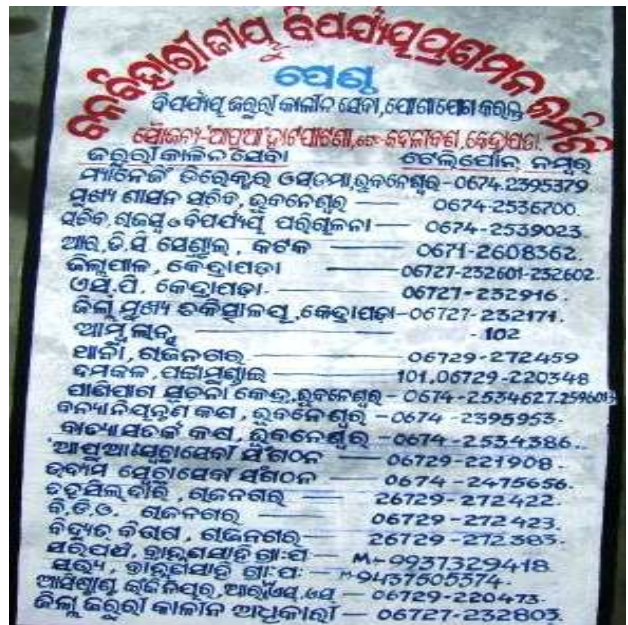 ବିପର୍ଯ୍ୟୟ ପ୍ରଶମନ କମିଟି
ପେଣ୍ଠ
ବିପର୍ଯ୍ୟୟ ଜରୁରୀ କାଳୀନ ସେବା, ଯୋଗାଯୋଗ କରନ୍ତୁ
ସୌଜନ୍ୟ-ଆପ୍ରଆ କେନ୍ଦ୍ରାପଡା.
ଜରୁରୀ କାଳୀନ ସେବା ଟେଲିଫୋନ୍ ନମ୍ବର
ମ୍ୟାନେଜିଂ ଡିରେକ୍ଟର ଓସଡମା, ଭୁବନେଶ୍ୱର-0674.2395379
ମୁଖ୍ୟ ଶାସନ ସଚିବ, ଭୁବନେଶ୍ୱର — 0674-2536700.
ସଚିବ, ରାଜସ୍ୱ ଓ ବିପର୍ଯ୍ୟୟ ପରିଚାଳନା — 0674-2539023
ଆର.ଡି.ସି ସେଣ୍ଟ୍ରାଲ, କଟକ — 0671-2608362.
ଜିଲ୍ଲାପାଳ, କେନ୍ଦ୍ରାପଡା — 06727-232601-232602.
ଏସ୍.ପି. କେନ୍ଦ୍ରାପଡା- 06727-232916.
ଜିଲ୍ଲା ମୁଖ୍ୟ ଚିକିତ୍ସାଳୟ, କେନ୍ଦ୍ରାପଡା-06727-232171.
ଆମ୍ବୁଲାନ୍ସ — 102
ଥାନା, ରାଜନଗର — 06729-272459
ଦମକଳ, ପଟ୍ଟାମୁଣ୍ଡାଇ — 101,06729-220348
ପାଣିପାଗ ସୂଚନା କେନ୍ଦ୍ର, ଭୁବନେଶ୍ୱର - 0674-2534627.2596013
ବନ୍ୟା ନିୟନ୍ତ୍ରଣ କକ୍ଷ, ଭୁବନେଶ୍ୱର - 0674-2395953.
ବାତ୍ୟା ସତର୍କ କକ୍ଷ, ଭୁବନେଶ୍ୱର -0674-2534386.
ଆପ୍ରଆ ସ୍ୱେଚ୍ଛାସେବୀ ସଂଗଠନ — 06729-221908.
ସ୍ୱେଚ୍ଛାସେବୀ ସଂଗଠନ — 0674-2475656.
ତହସିଲ୍ ଦାର, ରାଜନଗର — 26729-272422.
ବି.ଡି.ଓ. ରାଜନଗର — 06729-272423.
ବିଦ୍ୟୁତ ବିଭାଗ, ରାଜନଗର — 26729-272383.
ସରପଞ୍ଚ, ଗ୍ରା:ପ: — M-9937329418
ସଭ୍ୟ, ଗ୍ରା:ପ: M-9437605374.
06729-220473.
ଜିଲ୍ଲା ଜରୁରୀ କାଳୀନ ଅଧିକାରୀ — 06727-232803.